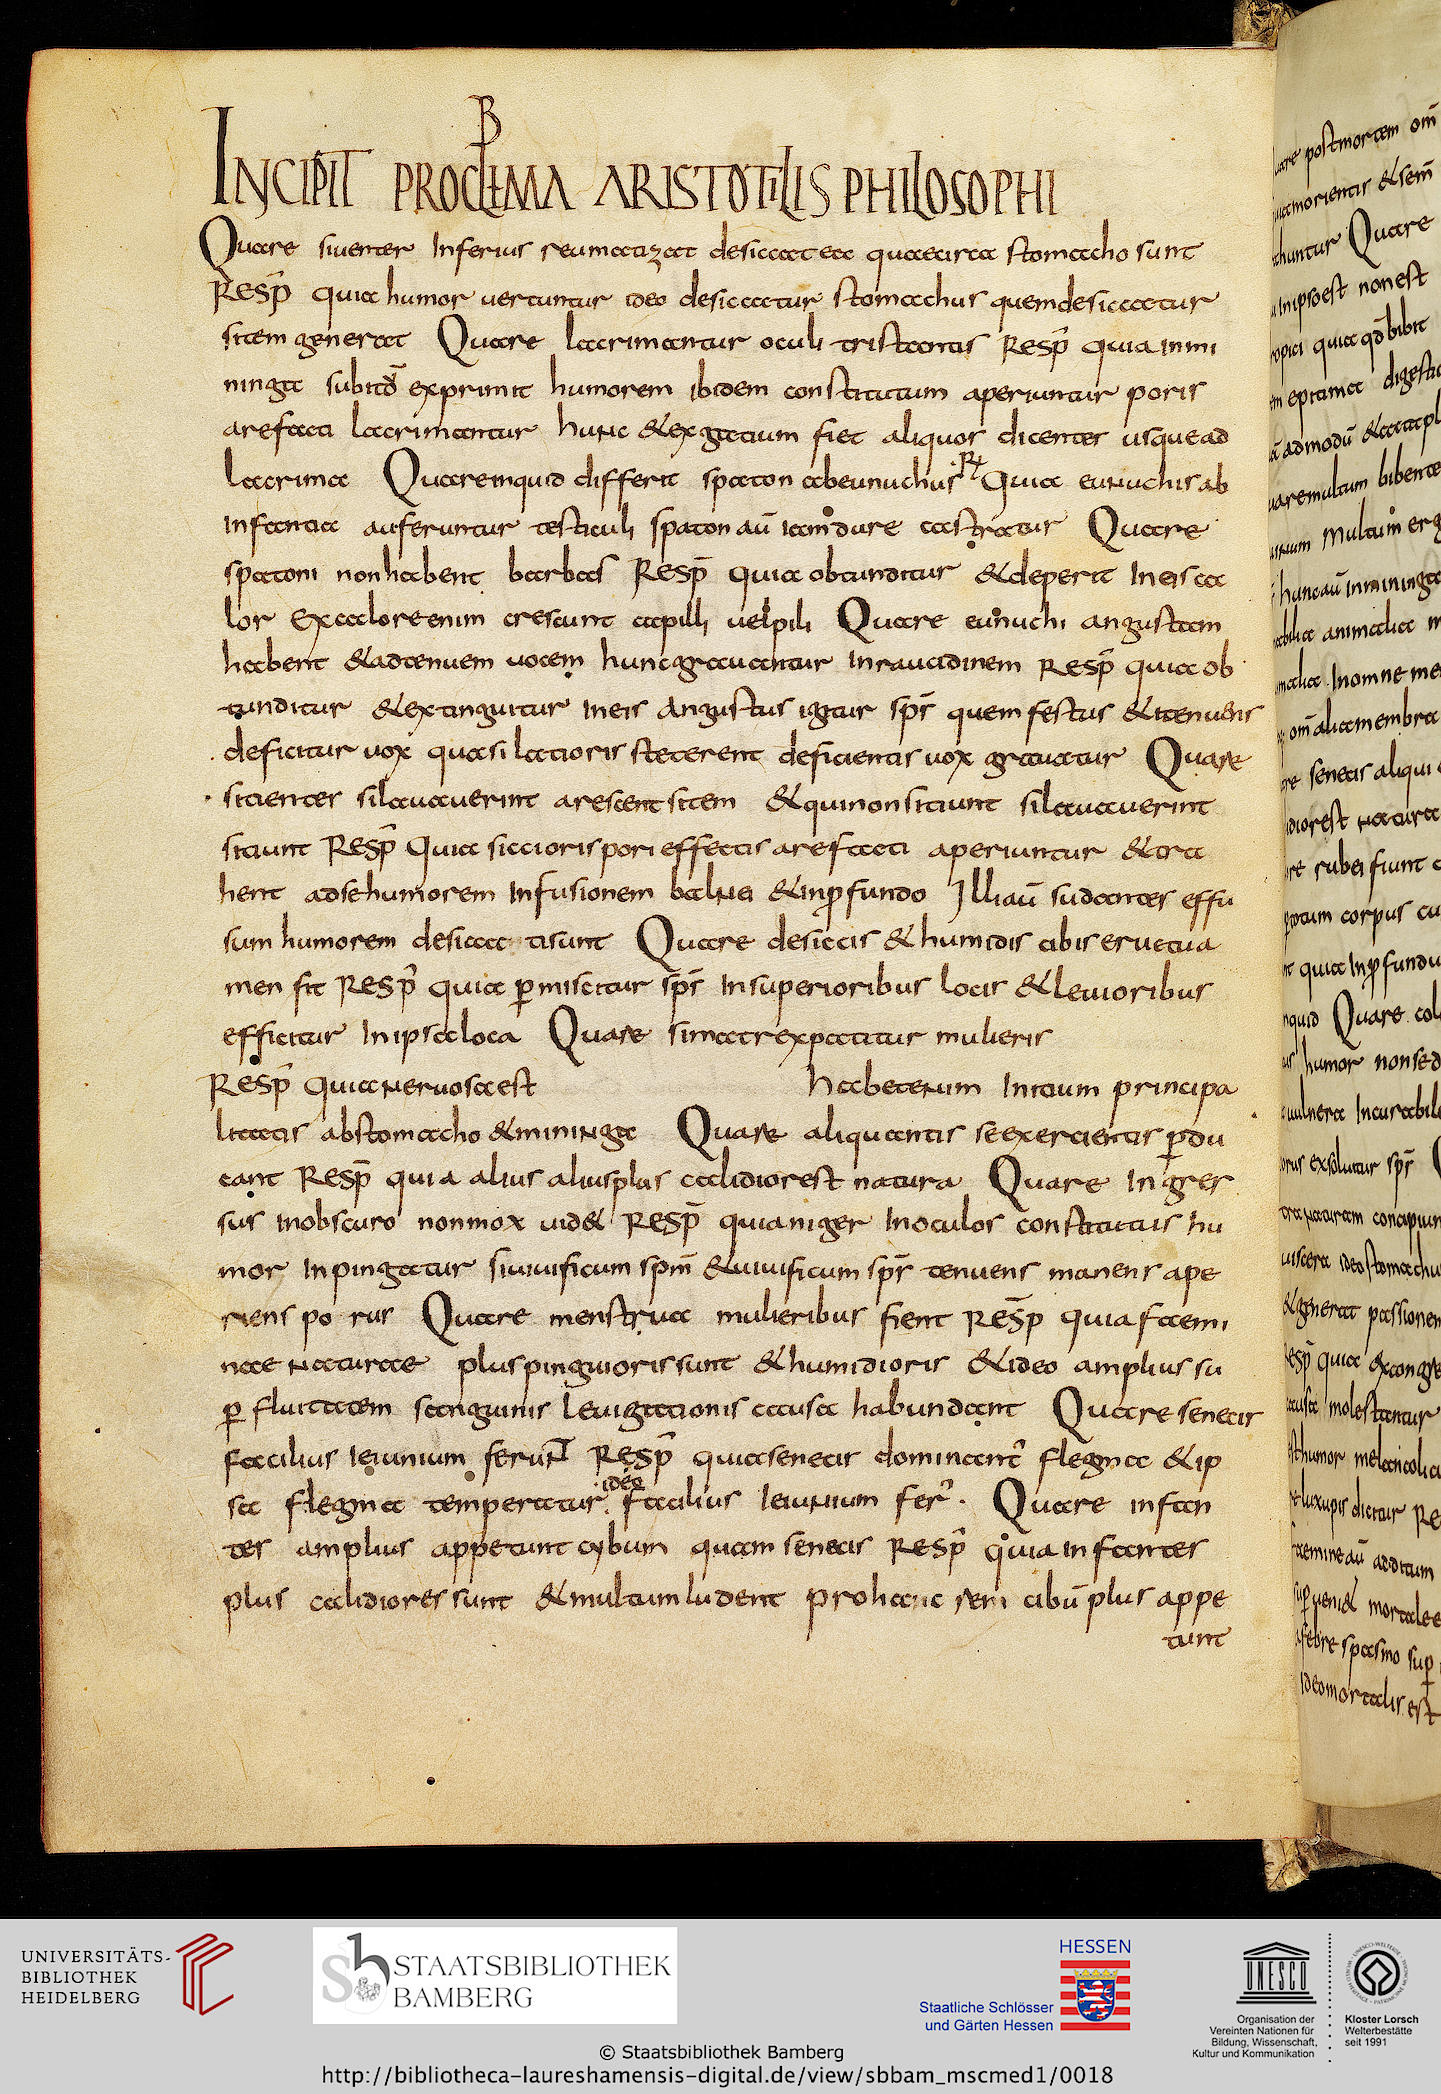 B
INCIPIT PROCLEMA ARISTOTILIS PHILOSOPHI
Quare siuenter Inferius reumatizat desiccat ea quaecirca stomacho sunt
RESP̄ quia humor uertuntur ideo desiccatur stomachus quemdesiccatur
sitem generat Quare lacrimantur oculi tristantis RESP̄ quia inmi
ninga subito exprimit humorem ibidem constitutum aperiuntur poris
arefacti lacrimantur hunc &exgatium fiet aliquor dicenter usquead
lacrima Quareinquid differit spaton abeunuchus R̄ Quia eunuchis ab
infantia auferuntur testiculi spaton aū iam dure castratur Quare
spatoni nonhabent barbas RESP̄ quia obtunditur &deperit Ineis ca
lor Excaloreenim crescunt capilli uelpili Quare eunuchi angustam
habent &adtenuem uocem hunc grauantur Inraucidinem RESP̄ quia ob
tunditur &extinguitur Ineis Angustus igitur sp̄s quem festus &tenuens
deficitur uox quasi latioris steterent deficientis uox grauatur Quare
sitienter silauauerint arescent sitem &quinonsitiunt silauauerint
sitiunt RESP̄ Quia siccioris pori effectis arefacti aperiuntur &tra
hent adsehumorem Infusionem balnei &inꝓfundo Illiaū sudanter effu
sum humorem desicca tisunt Quare desiccis &humidis cibis eructua
men fit RESP̄ quia ꝑmiscitur sp̄s Insuperioribus locis &leuioribus
efficitur Inipsa loca Quare simatrexpatitur mulieris
RESP̄ Quia neruosa est habetenum Intium principa
litatis abstomacho &mininga Quare aliquantis seexercientis ꝑdu
cant RESP̄ quia alius aliusplus calidiorest natura Quare Ingres
sus Inobscuro nonmox uid& RESP̄ quianiger Inoculos constitutus hu
mor Inpingatur siuiuificum sp̄m &uiuificum sp̄s tenuens manens ape
riens po rus Quare menstrua mulieribus fient RESP̄ quia faemi
nae naturae pluspinguioris sunt &humidioris &ideo amplius su
ꝑ fluitatem sanguinis Leuigationis causa habundant Quare senecis
facilius Ieiunium ferunt RESP̄ quia senecis dominant̄ flegma &ip
ideo
sa flegma temperatur facilius Ieiunium fer̄. Quare infan
ter amplius appetunt cybum quam senecis RESP̄ quia infanter
plus calidiores sunt &multum ludent prohanc rem cibū plus appe
tunt
uare postmortem om̄
morientis &sem̄
huntur Quare
Inipsoest nonest
opici quia qd̄ bibit
admodū
uaremultum bibente
multum erg
huncaū Inmininga
animalia
Inomne me
om̄ alia membra
re senecis aliqui
diorest natura
re rubei fiunt
totum corpus cu
quia Inꝓfundu
inquid Quare col
us humor nonsed
uulnera Incurabil
exsoluitur sp̄s
naturam concipiun
uiscera ideo stomachu
&generat passionem
RESP̄ quia &congre
causa molestantur
humor melancolic
luxupis dicitur RE
femine aū
ueni& mortale
febre spasmo suꝑ
Ideomortalis est
UNIVERSITÄTS-
BIBLIOTHEK
HEIDELBERG
STAATSBIBLIOTHEK
BAMBERG
HESSEN
Staatliche Schlösser
und Gärten Hessen
UNESCO
Organisation der
Vereinten Nationen für
Bildung, Wissenschaft,
Kultur und Kommunikation
Kloster Lorsch
Welterbestätte
seit 1991
© Staatsbibliothek Bamberg
http://bibliotheca-laureshamensis-digital.de/view/sbbam_mscmed1/0018